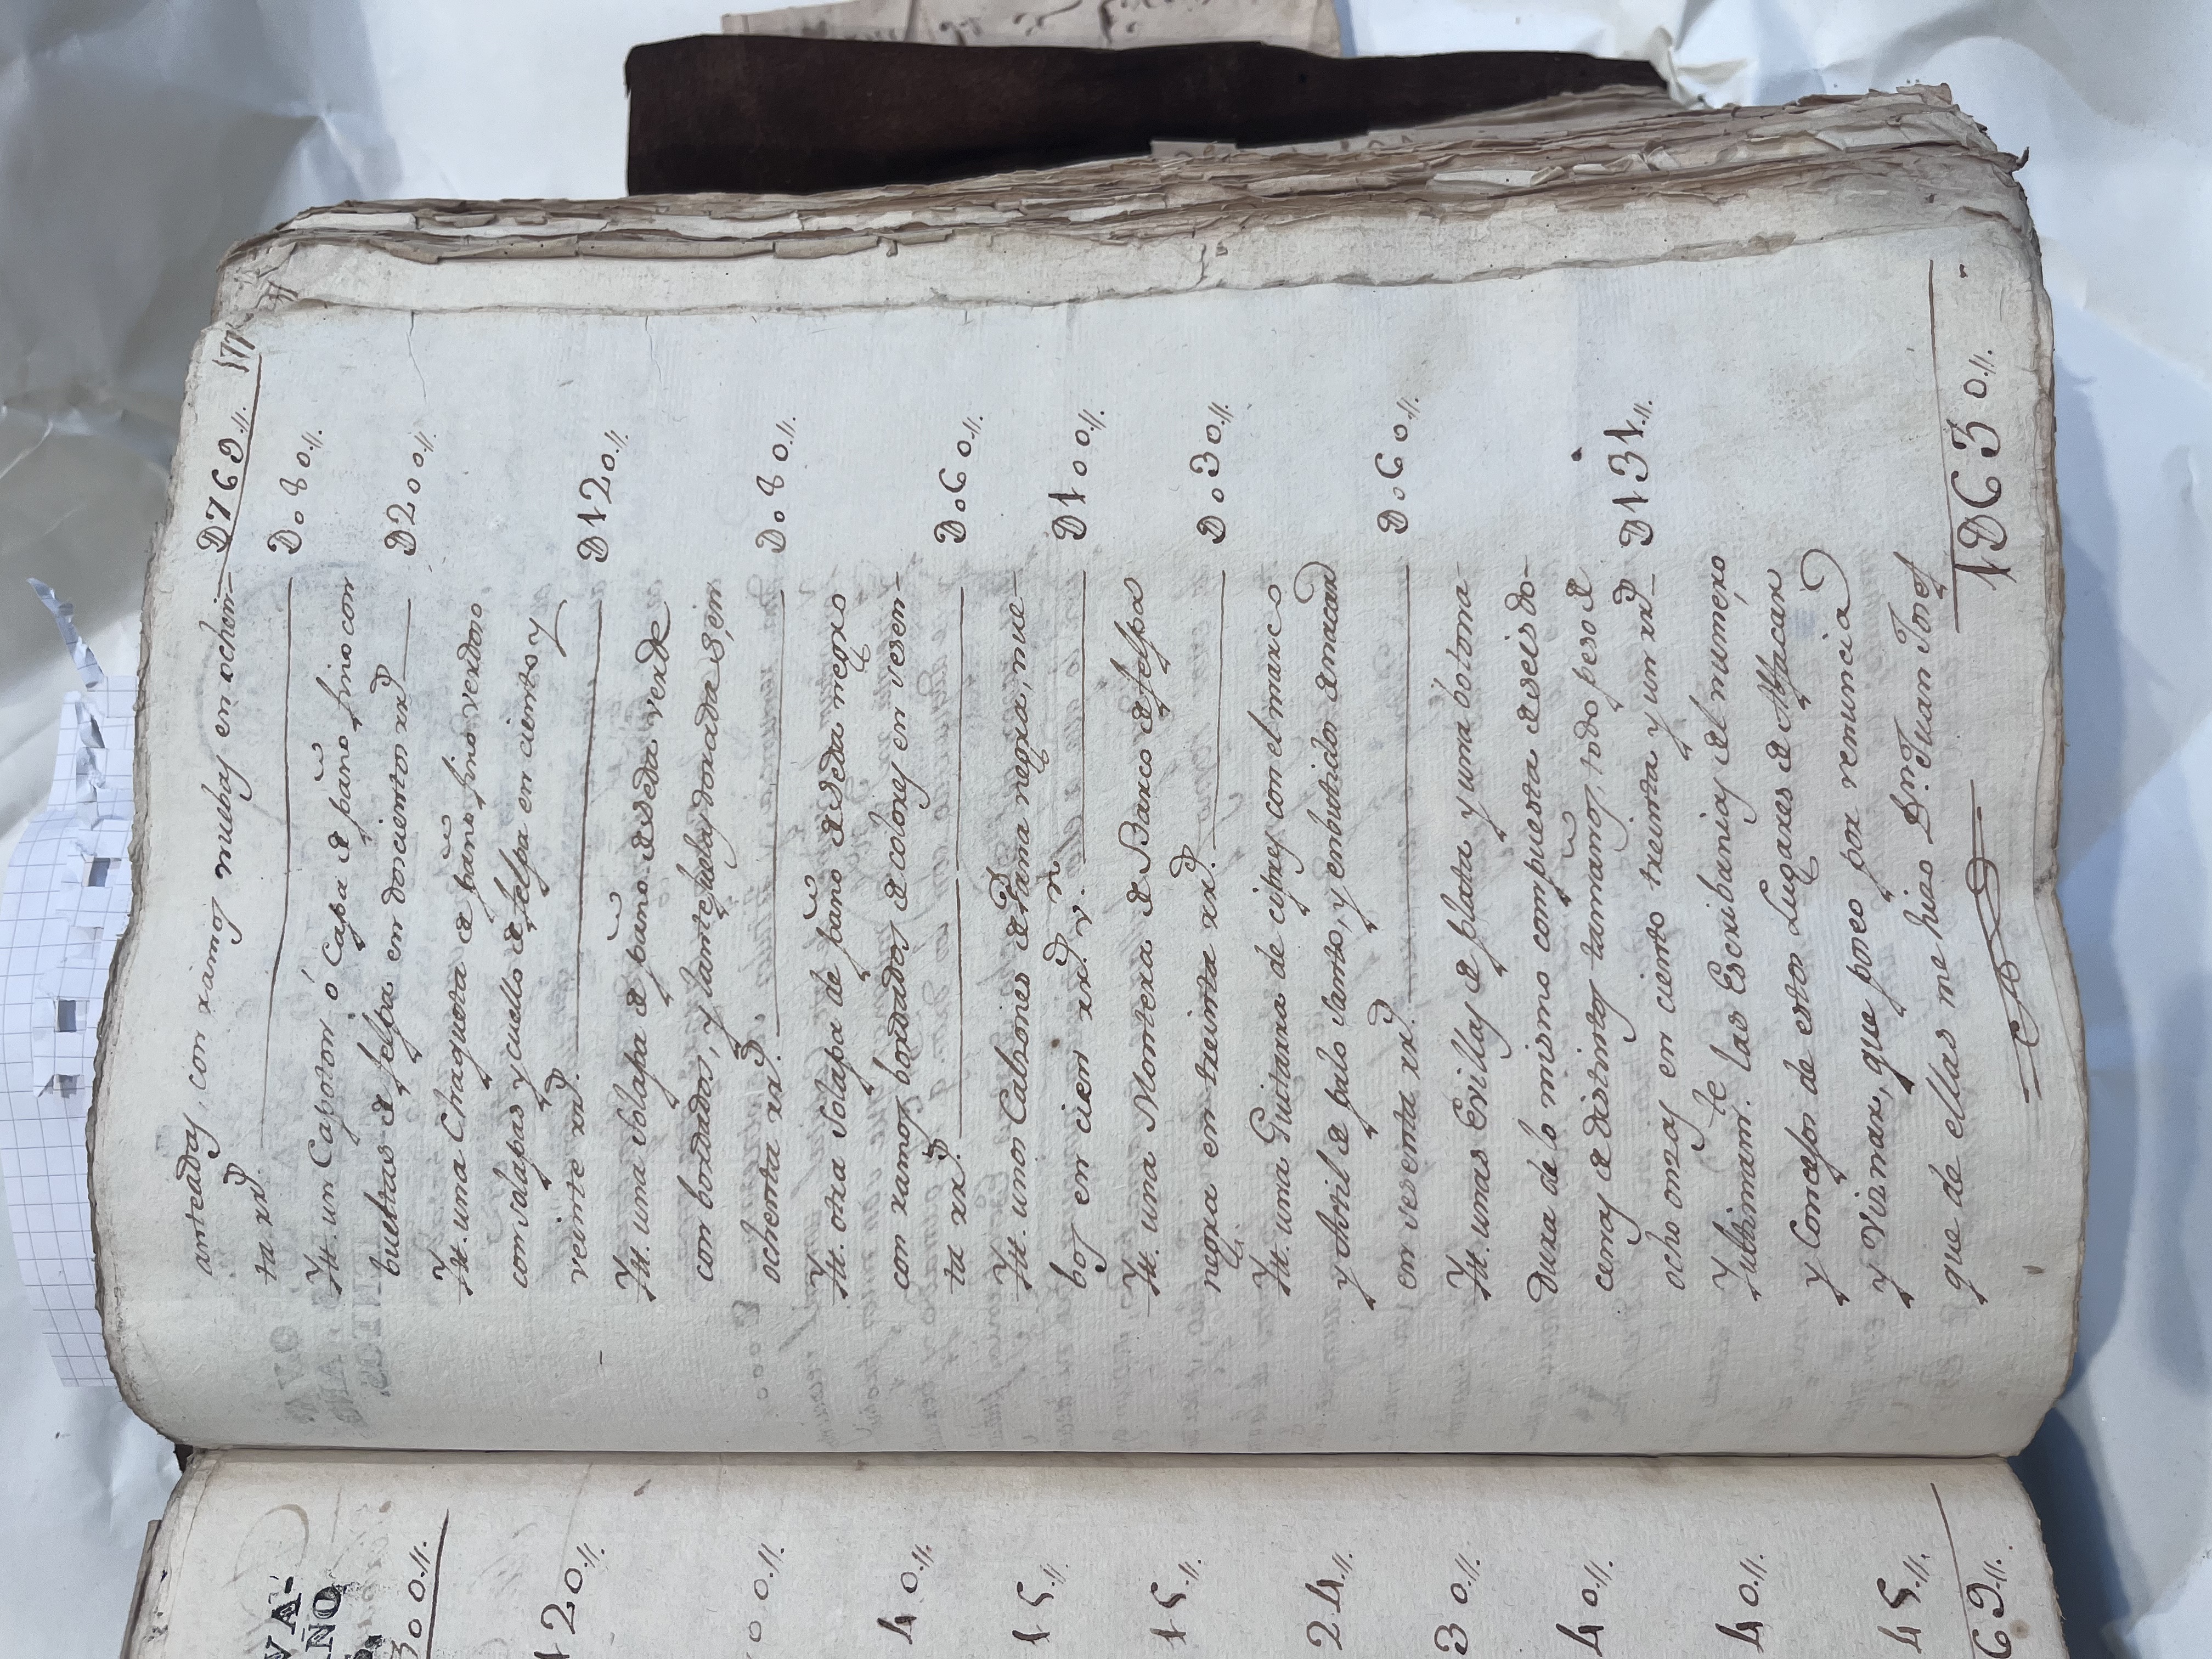 D769.,,. 177
anteadas, con ramos nuebas en ochen-
ta rs. D.080.,,.
Yt. un Capoton ó Capa de paño fino con
bueltas de felpa en doscientos rs. D200.,,.
Yt. una Chaqueta de paño fino verdoso
con solapas y cuello de felpa en ciento y
veinte rs. D120.,,.
Yt. una solapa de paño de seda verde
con bordados, y lantejuelas doradas en
ochenta rs. D.080.,,.
Yt. otra solapa de paño de seda negro
con ramos bordados de colores en sesen-
ta rs. D.060.,,.
Yt. unos Calsones de Pana negra, nue-
bos en cien rs. v.n D100.,,.
Yt. una Montera de Barco de felpa
negra en treinta rs. D.030.,,.
Yt. una Guitarra de cipres con el marco
y astil de palo santo, y embutidos de nacar
en sesenta rs. D.060.,,.
Yt. unas Evillas de plata y una botona-
dura de lo mismo compuesta de seis do-
cenas de distintos tamaños, todo peso de
ocho onzas en ciento treinta y un rs. D131.,,.
Y ultimam.te las Escribanias del numero
y Concejos de estos Lugares de Alfacar
y Viznar, que poseo por renuncia
que de ellas me hizo Dn. Juan Jose 1D630.,,.
VA-
AÑO
300.,,.
120.,,.
00.,,.
40.,,.
15.,,.
15.,,.
24.,,.
30.,,.
40.,,.
40.,,.
45.,,.
69.,,.